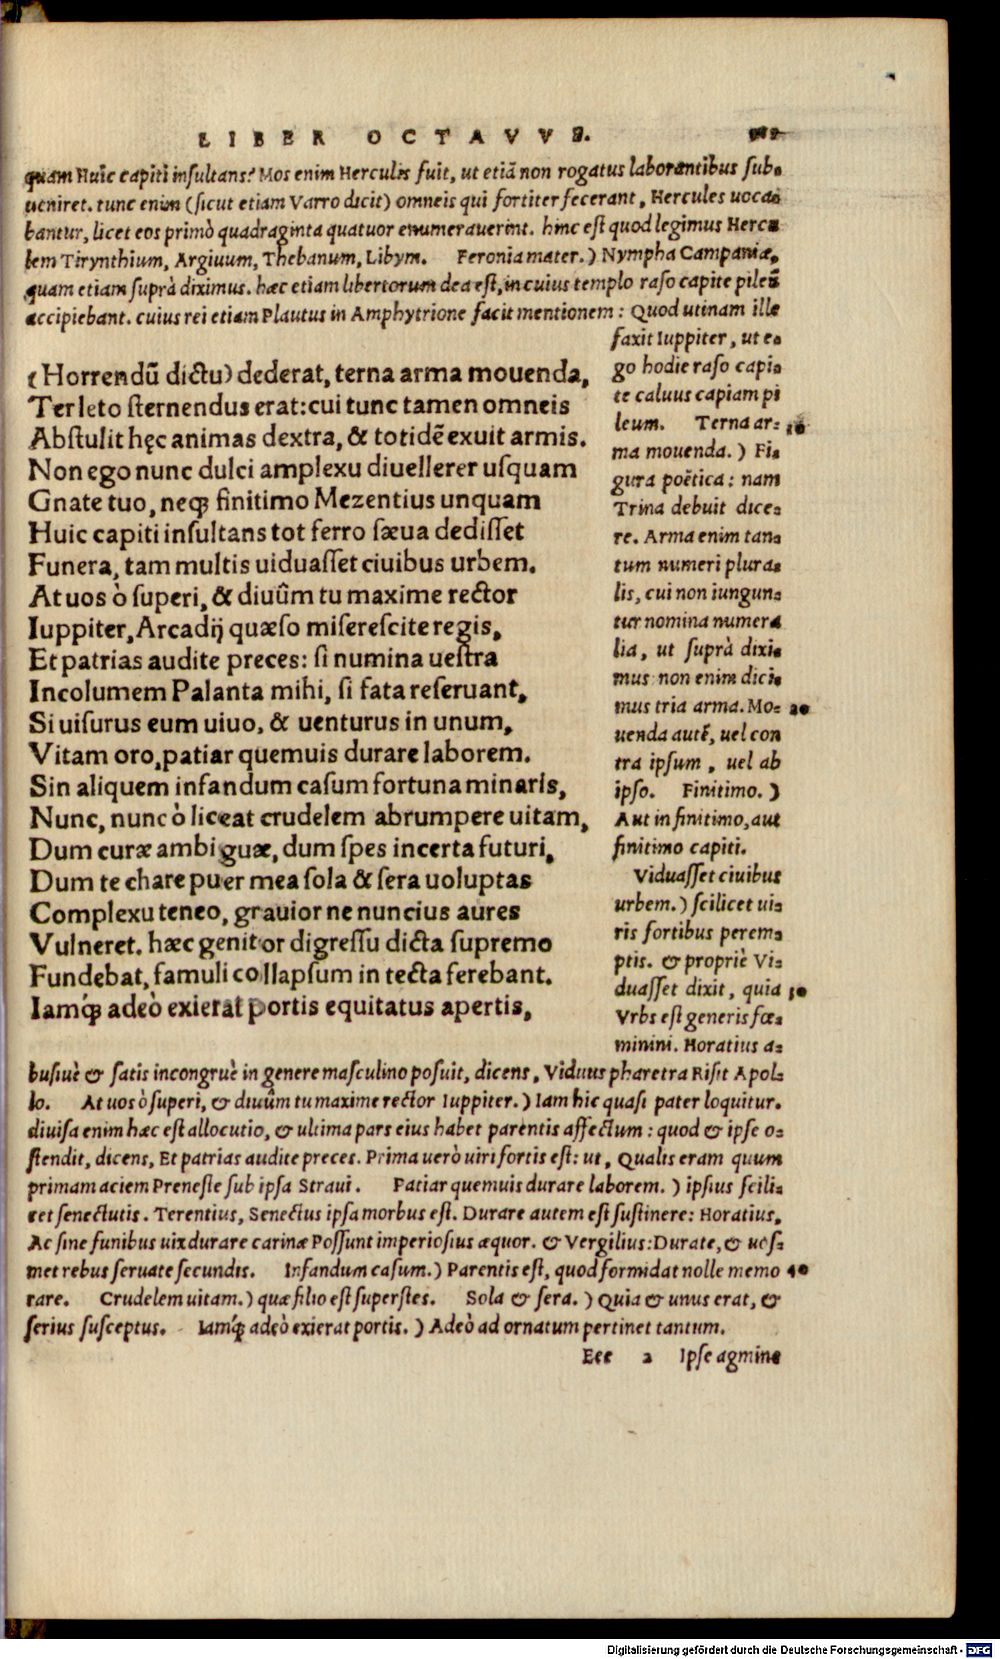 LIBER OCTAVVS.
quam Huic capiti insultans? Mos enim Herculis fuit, ut etiã non rogatus laborantibus sub-
ueniret. tunc enim (sicut etiam Varro dicit) omneis qui fortiter fecerant, Hercules uoca-
bantur, licet eos primò quadraginta quatuor enumerauerint. hinc est quod legimus Hercu-
lem Tirynthium, Argiuum, Thebanum, Libym. Feronia mater.) Nympha Campaniæ,
quam etiam suprà diximus. hæc etiam libertorum dea est, in cuius templo raso capite pileũ
accipiebant. cuius rei etiam Plautus in Amphytrione facit mentionem: Quod utinam ille
faxit Iuppiter, ut e-
go hodie raso capi-
te caluus capiam pi
leum. Terna ar- 10
ma mouenda.) Fi-
gura poëtica: nam
Trina debuit dice-
re. Arma enim tan-
tum numeri plura-
lis, cui non iungun-
tur nomina numera
lia, ut suprà dixi-
mus non enim dici-
mus tria arma. Mo- 20
uenda autẽ, uel con
tra ipsum, uel ab
ipso. Finitimo.)
Aut in finitimo, aut
finitimo capiti.
Viduasset ciuibus
urbem.) scilicet ui-
ris fortibus perem-
ptis. & propriè Vi-
duasset dixit, quia 30
Vrbs est generis fœ-
minini. Horatius a-
(Horrendũ dictu) dederat, terna arma mouenda,
Ter leto sternendus erat: cui tunc tamen omneis
Abstulit hęc animas dextra, & totidẽ exuit armis.
Non ego nunc dulci amplexu diuellerer usquam
Gnate tuo, neq; finitimo Mezentius unquam
Huic capiti insultans tot ferro sæua dedisset
Funera, tam multis uiduasset ciuibus urbem.
At uos ò superi, & diuûm tu maxime rector
Iuppiter, Arcadij quæso miserescite regis,
Et patrias audite preces: si numina uestra
Incolumem Palanta mihi, si fata reseruant,
Si uisurus eum uiuo, & uenturus in unum,
Vitam oro, patiar quemuis durare laborem.
Sin aliquem infandum casum fortuna minaris,
Nunc, nunc ò liceat crudelem abrumpere uitam,
Dum curæ ambiguæ, dum spes incerta futuri,
Dum te chare puer mea sola & sera uoluptas
Complexu teneo, grauior ne nuncius aures
Vulneret. hæc genitor digressu dicta supremo
Fundebat, famuli collapsum in tecta ferebant.
Iamq́; adeò exierat portis equitatus apertis,
busiuè & satis incongruè in genere masculino posuit, dicens, Viduus pharetra Risit Apol-
lo. At uos ò superi, & diuûm tu maxime rector Iuppiter.) Iam hic quasi pater loquitur.
diuisa enim hæc est allocutio, & ultima pars eius habet parentis affectum: quod & ipse o-
stendit, dicens, Et patrias audite preces. Prima uerò uiri fortis est: ut, Qualis eram quum
primam aciem Preneste sub ipsa Straui. Patiar quemuis durare laborem.) ipsius scili-
cet senectutis. Terentius, Senectus ipsa morbus est. Durare autem est sustinere: Horatius,
Ac sine funibus uix durare carinæ Possunt imperiosius æquor. & Vergilius: Durate, & uos-
met rebus seruate secundis. Infandum casum.) Parentis est, quod formidat nolle memo 40
rare. Crudelem uitam.) quæ filio est superstes. Sola & sera.) Quia & unus erat, &
serius susceptus. Iamq́; adeò exierat portis.) Adeò ad ornatum pertinet tantum.
Eee 2 Ipse agmine
Digitalisierung gefördert durch die Deutsche Forschungsgemeinschaft - DFG